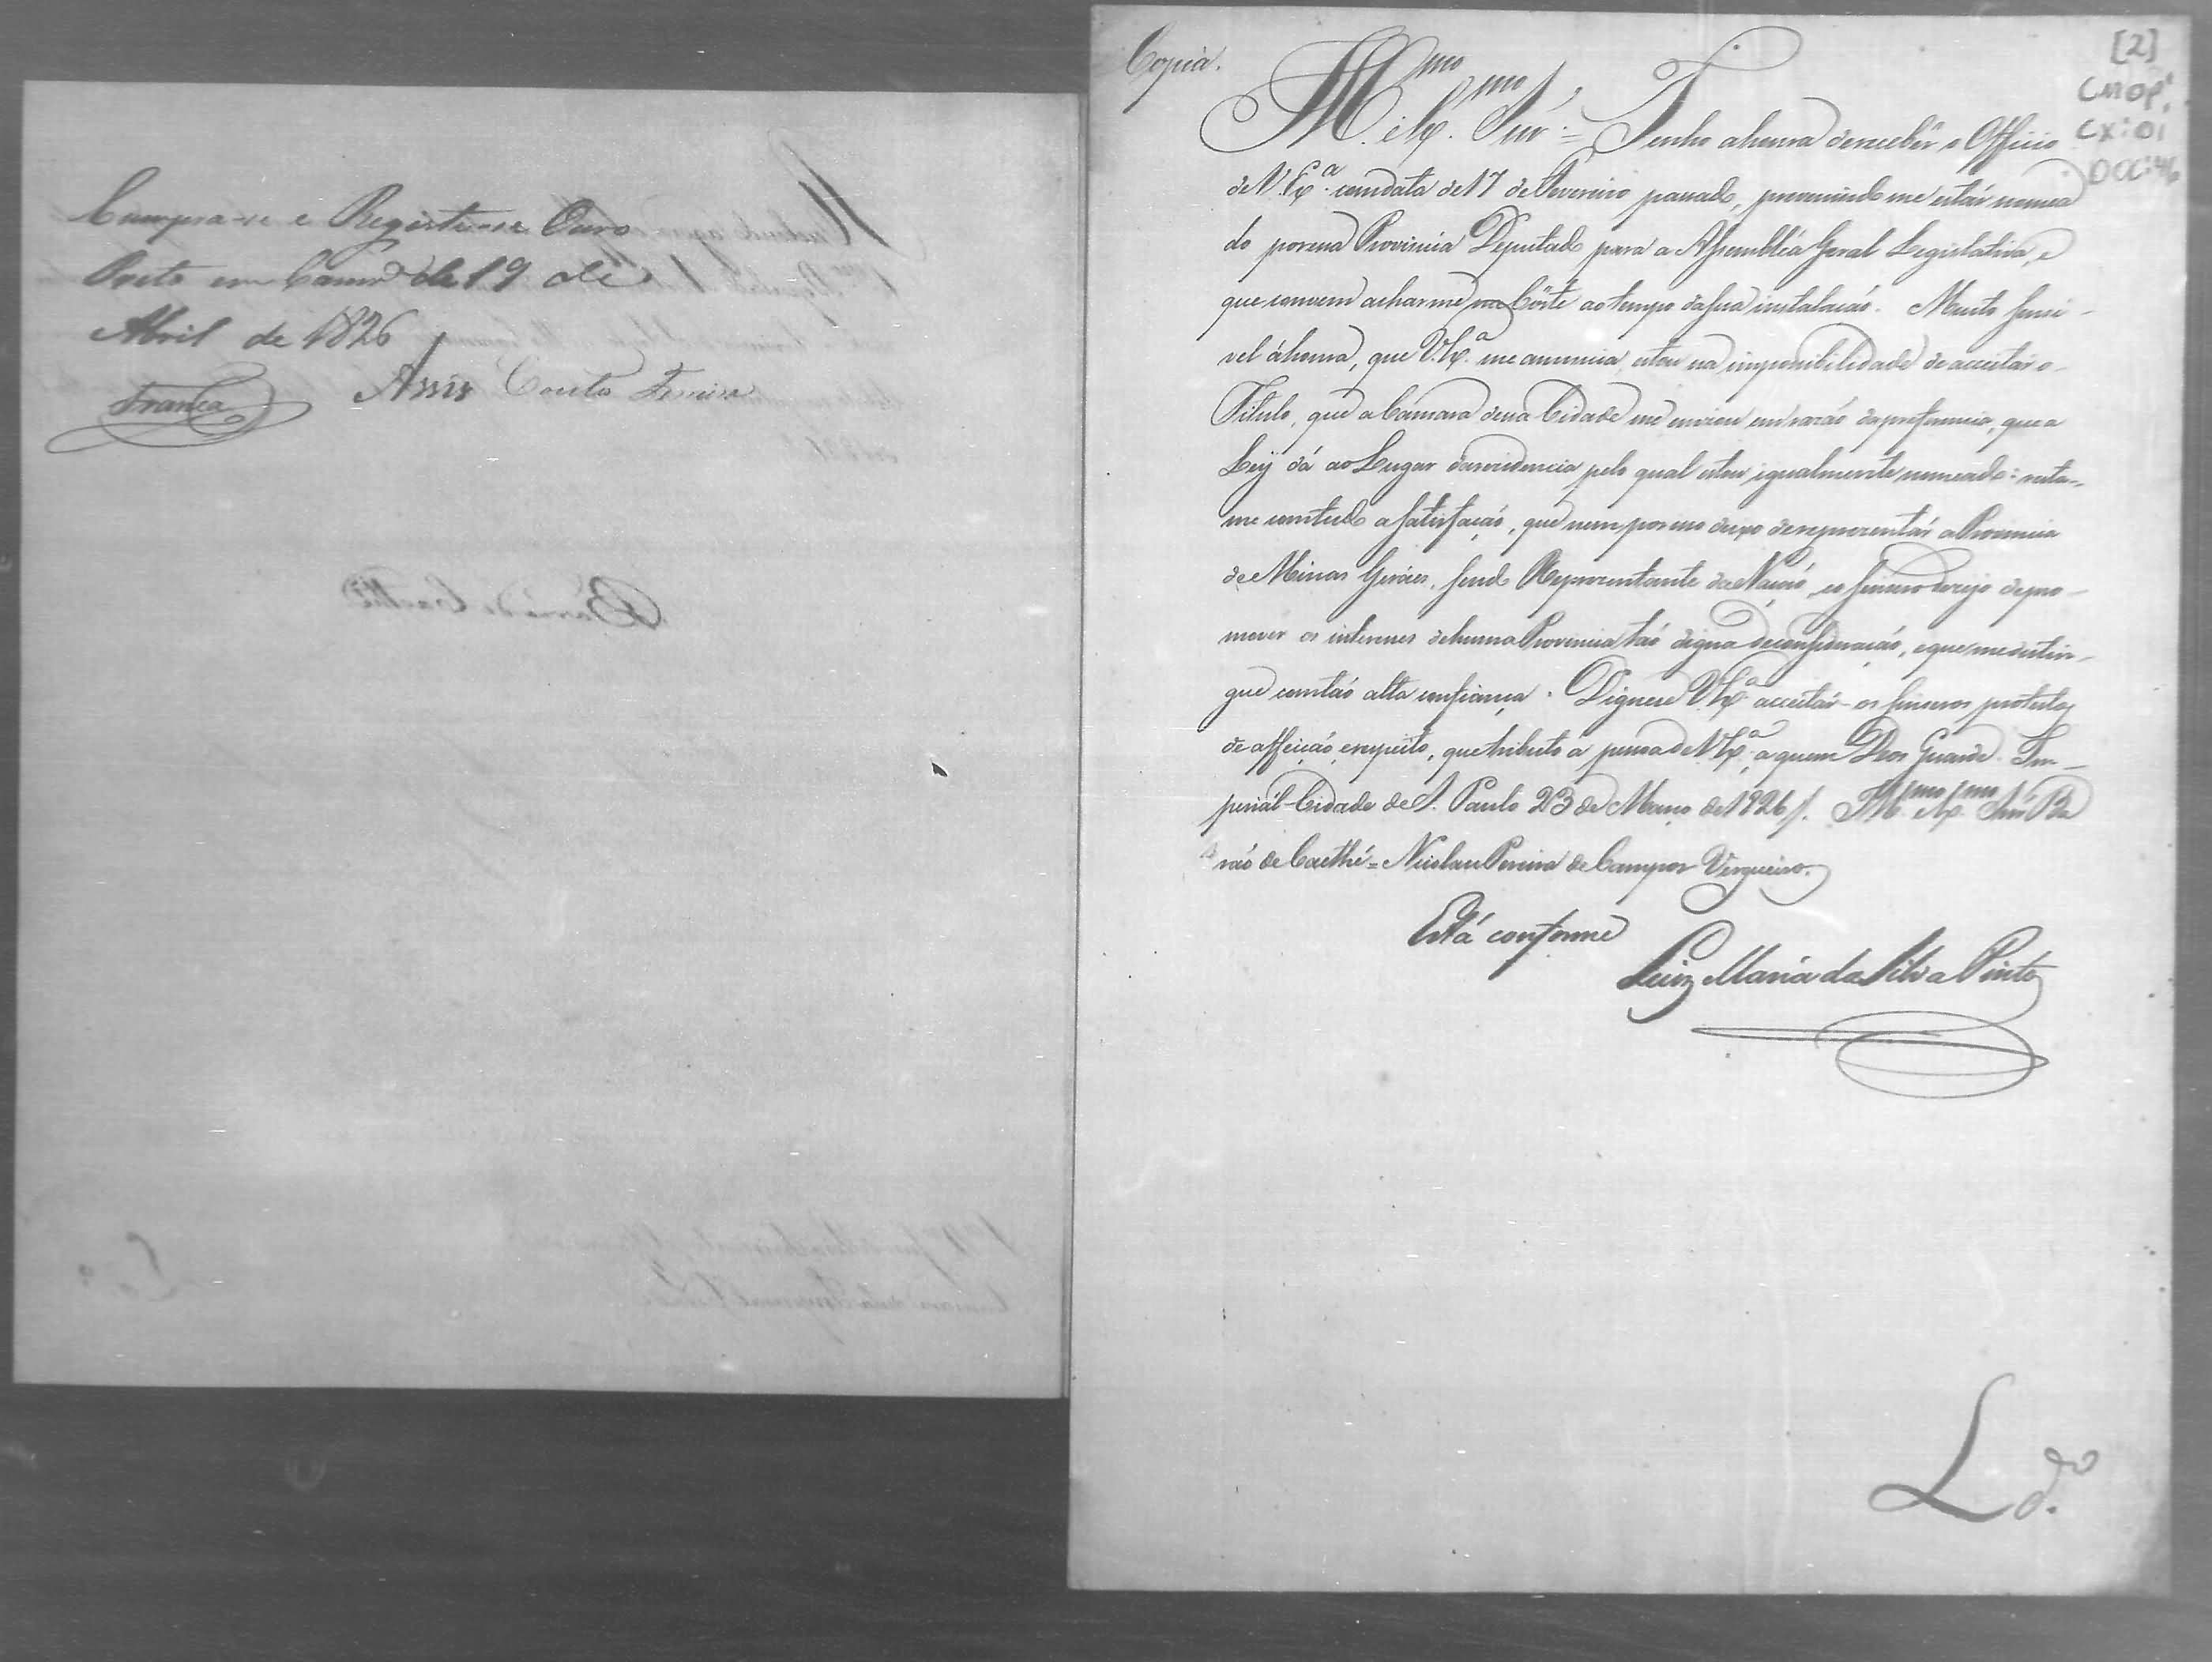 Cumpra-se e Registe-se Ouro
Preto em Camrª de 19 de
Abril de 1826
França Assis Couto Ferreira
Copia.
[2]
CMOP.
CX: 01
DOC: 46
Illmo e Exmo Snr.= Tenho a honra de receber o Officio
de V. Exª. com data de 17 de Fevereiro passado, prevenindo me estár nomea
do por essa Provincia Deputado para a Assembléa Geral Legislativa, e
que convem achar me na Côrte ao tempo da sua instalacaó. Muito sensi-
vel á honra, que V. Exª. me annuncia, estou na impossibilidade de acceitar o
Titulo, que a Camara dessa Cidade me enviou em razaó da preferencia, que a
Ley dá ao Lugar da residencia pelo qual estou igualmente nomeado: resta-
me comtudo a satisfaçaó, que nem por isso deixo de representár a Provincia
de Minas Geráes, sendo Representante da Naçaó, e o sincero desejo de pro-
mover os interesses de huma Provincia taó digna de consideraçaó, e que me distin-
gue com taó alta confiança. Digne-se V. Exª acceitár os sinceros protestos
de affeiçaó, e respeito, que tributo a pessoa de V. Exª, a quem Deos Guarde. Im-
perial Cidade de S. Paulo 23 de Março de 1826/. Illmo Exmo Snr Ba
raó de Caethé= Nicolau Pereira de Campos Vergueiro.
Está conforme
Luiz Maria da Silva Pinto
L do.